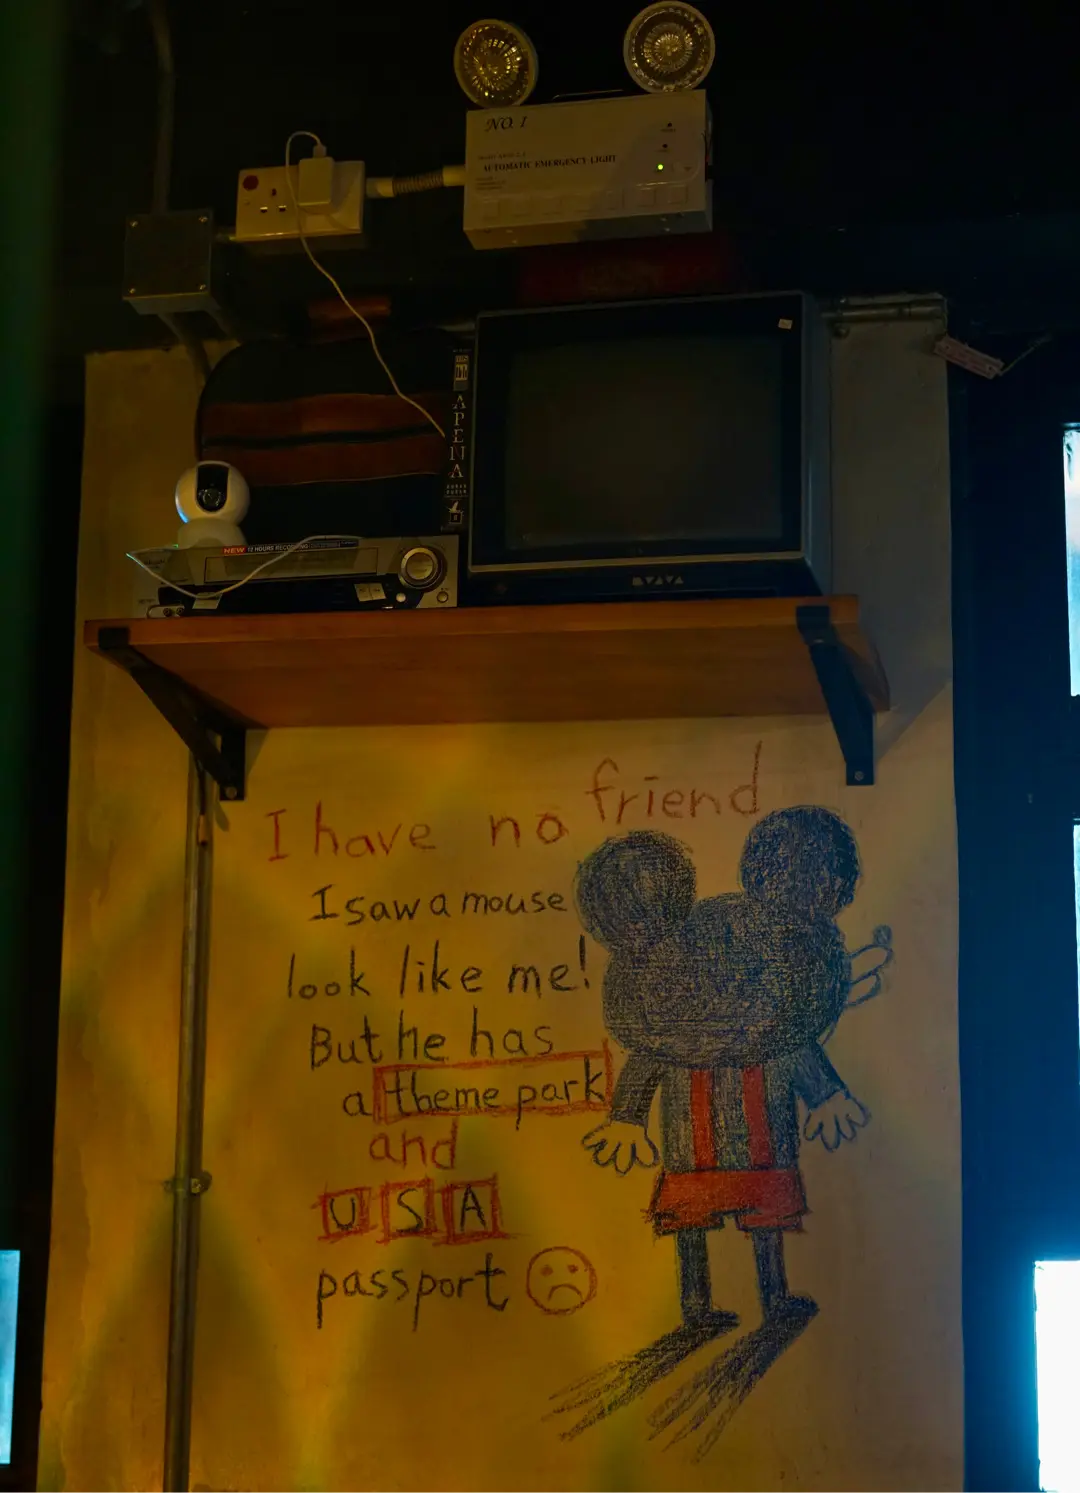 NO. 1
AUTOMATIC EMERGENCY LIGHT
APENA
NEW
I have no friend
I saw a mouse
look like me!
But he has
a theme park
and
USA
passport